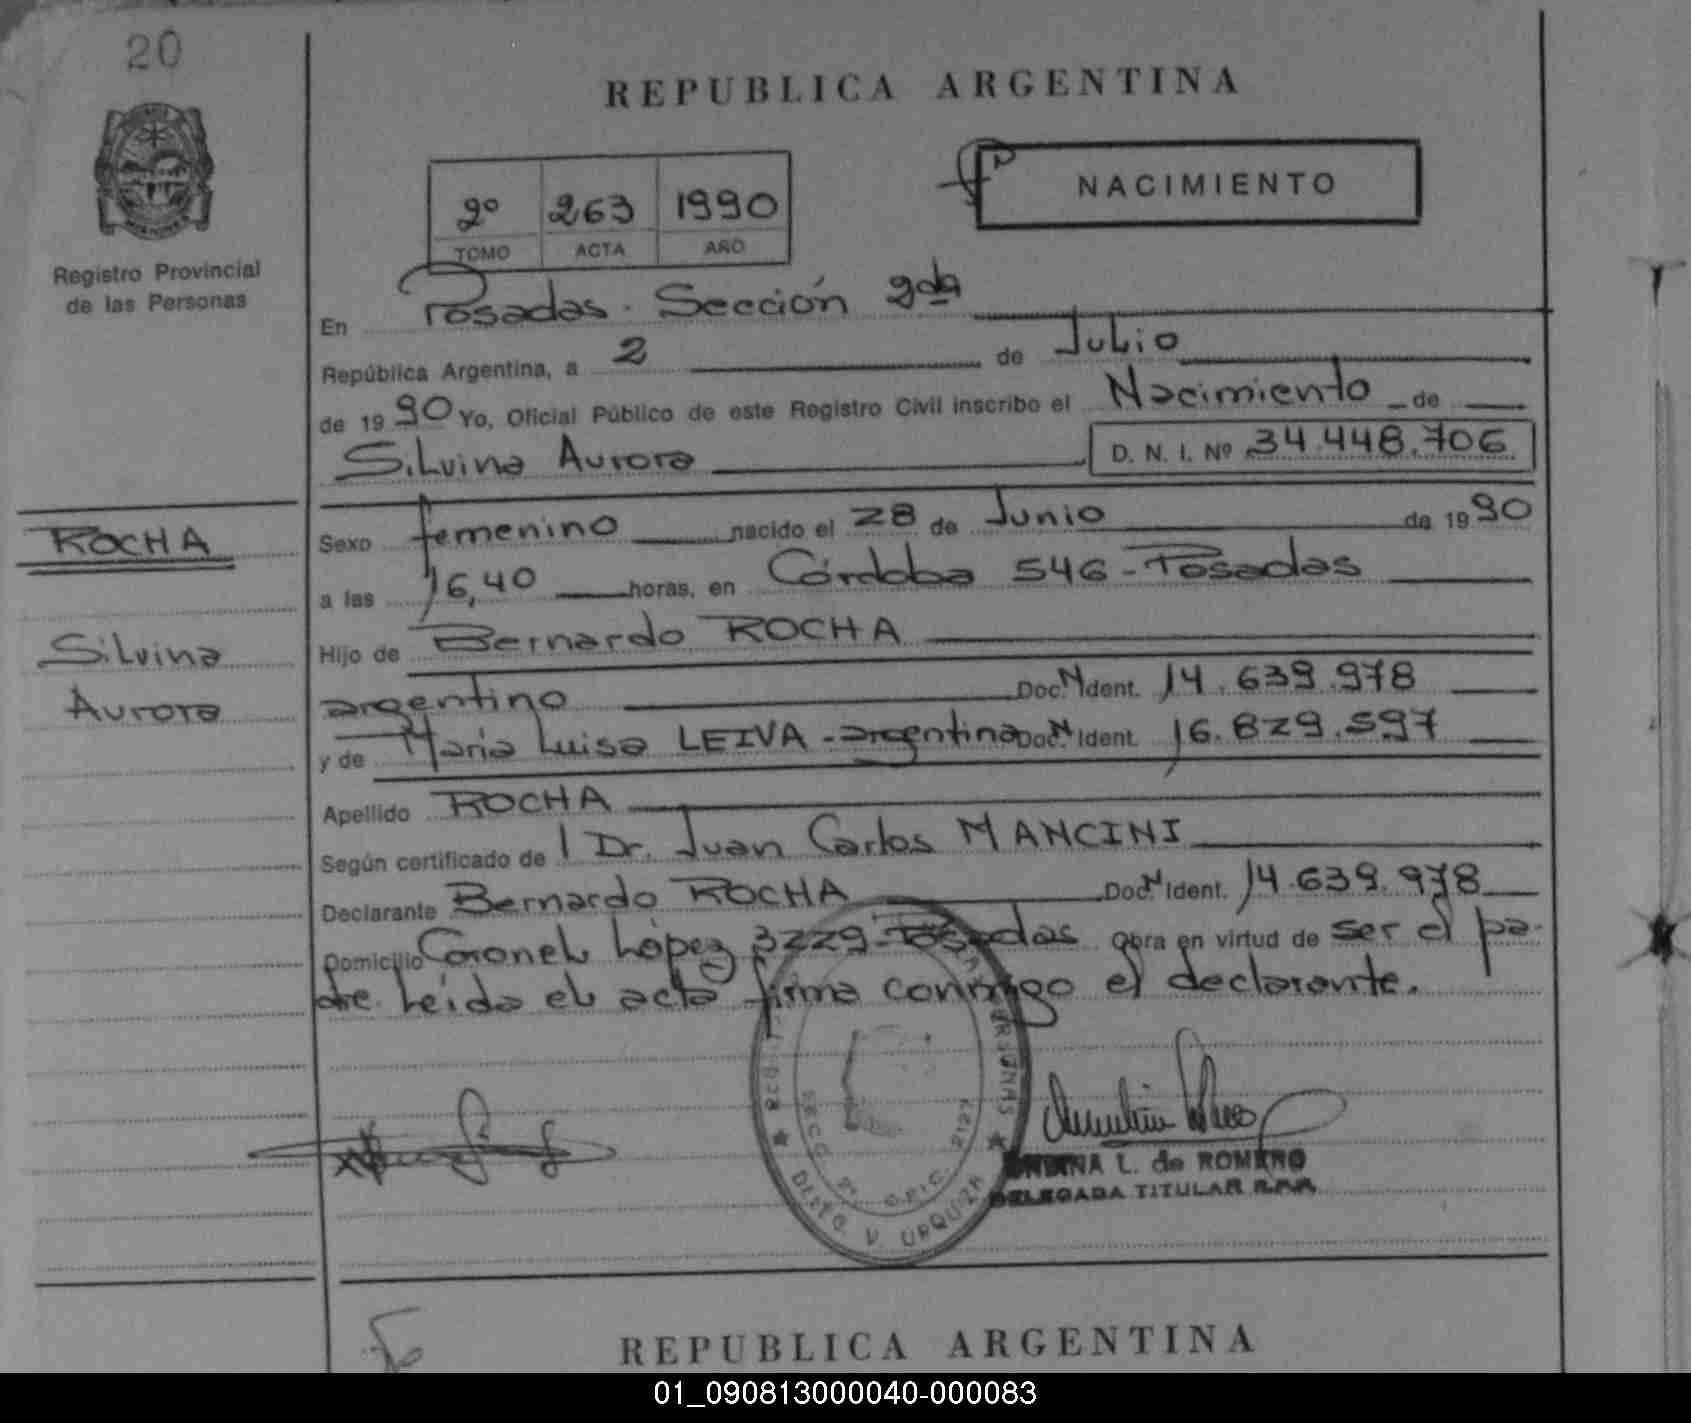 20
REPUBLICA ARGENTINA
Registro Provincial
de las Personas
2º 263 1990
TOMO ACTA AÑO
NACIMIENTO
En Posadas. Sección 2da
República Argentina, a 2 de Julio
de 1990 Yo, Oficial Público de este Registro Civil inscribo el Nacimiento de
Silvina Aurora D. N. I. Nº 34.448.706
ROCHA
Silvina
Aurora
Sexo femenino nacido el 28 de Junio de 1990
a las 16,40 horas, en Córdoba 546 - Posadas
Hijo de Bernardo ROCHA
argentino Doc. N Ident. 14.639.978
y de Maria Luisa LEIVA - argentina Doc. N Ident. 16.829.597
Apellido ROCHA
Según certificado de l Dr. Juan Carlos MANCINI
Declarante Bernardo ROCHA Doc. N Ident. 14.639.978
Domicilio Coronel López 3229 - Posadas Obra en virtud de ser el pa-
dre. Leida el acta firma conmigo el declarante.
SECC. 2ª OFIC. 2127
DELEG. V. URQUIZA
L. de ROMERO
DELEGADA TITULAR R.P.P.
REPUBLICA ARGENTINA
01_090813000040-000083